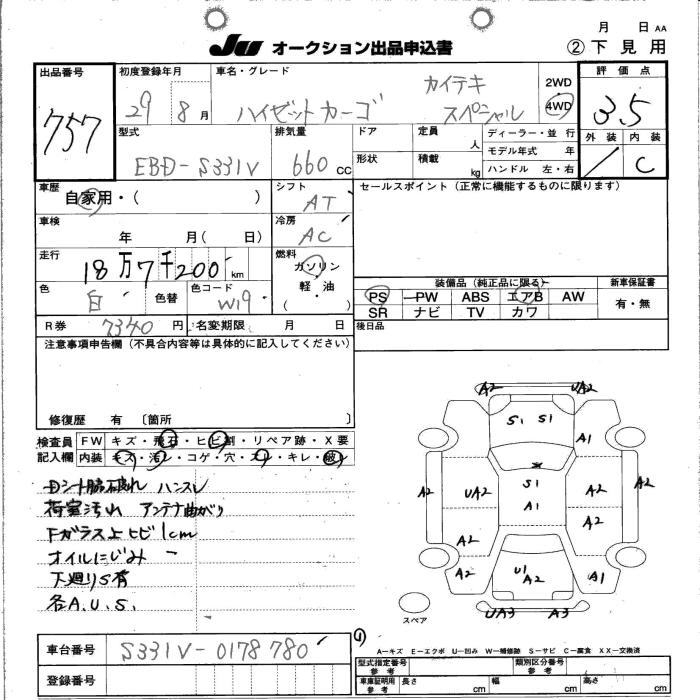 月 日 AA
JU オークション出品申込書
② 下見用
出品番号
757
初度登録年月
29 8 月
車名・グレード
カイテキ
ハイゼットカーゴ スペシャル
2WD
4WD
評価点
3.5
外装 内装
/ C
型式
EBD-S331V
排気量
660 cc
ドア
定員 人
形状
積載 kg
ディーラー・並行
モデル年式 年
ハンドル 左・右
車歴
自家用・( )
シフト
AT
セールスポイント (正常に機能するものに限ります)
車検
年 月( 日)
冷房
AC
走行
18万7千200 km
燃料
ガソリン
軽・油
( )
色
白
色替
色コード
W19
装備品 (純正品に限る)
新車保証書
PS PW ABS エアB AW
SR ナビ TV カワ
有・無
R券 7340 円
名変期限 月 日
後日品
注意事項申告欄 (不具合内容等は具体的に記入してください)
修復歴 有 〔箇所 〕
検査員
記入欄
FW キズ・飛石・ヒビ割・リペア跡・X要
内装 キズ・汚レ・コゲ・穴・スレ・キレ・破レ
Dシート脇破れ ハンスレ
荷室汚れ アンテナ曲がり
Fガラス上ヒビ1cm
オイルにじみ
下廻りS有
各A.U.S.
A2 UA2
S1 S1
A1
S1
A1
A2 UA2 A2 A2
A2
A2
A2 U1 A2 A1
UA3 A3
スペア
①
A―キズ E―エクボ U―凹み W―補修跡 S―サビ C―腐食 XX―交換済
車台番号
S331V-0178780
登録番号
型式指定番号
参考
類別区分番号
参考
車庫証明用
参考
長さ cm 幅 cm 高さ cm